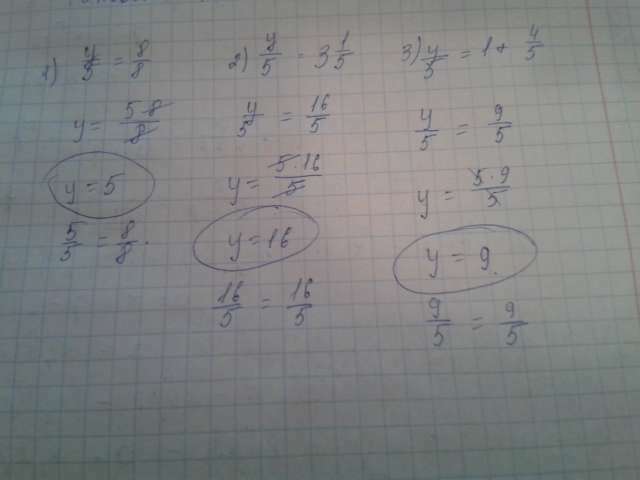 1) y/5 = 8/8
y = 5·8/8
y = 5
5/5 = 8/8.
2) y/5 = 3 1/5
y/5 = 16/5
y = 5·16/5
y = 16
16/5 = 16/5
3) y/5 = 1 + 4/5
y/5 = 9/5
y = 5·9/5
y = 9
9/5 = 9/5